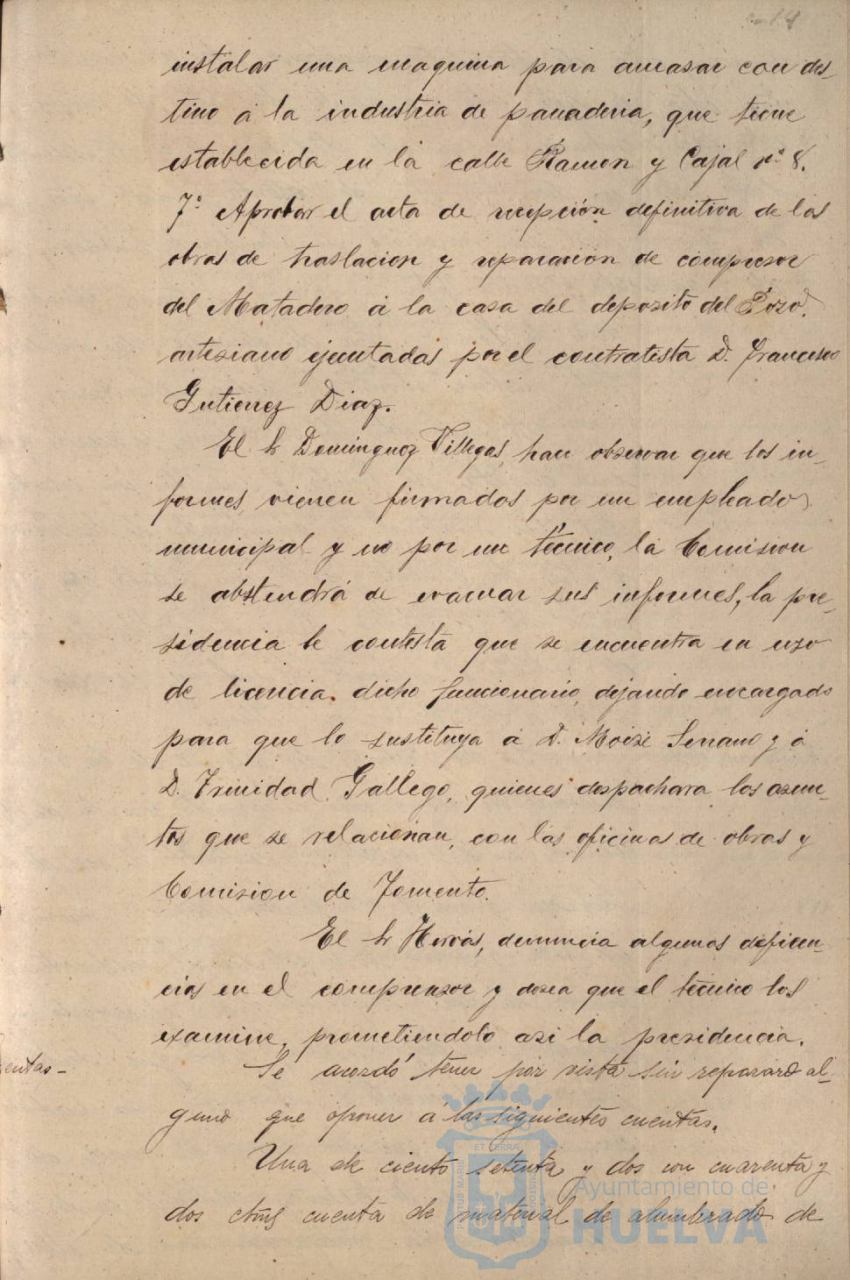 instalar una maquina para amasar con des-
tino á la industria de panaderia, que tiene
establecida en la calle Ramon y Cajal nº 8.
7º Aprobar el acta de recepción definitiva de las
obras de traslacion y reparación de compresor
del Matadero á la casa del deposito del Pozo
artesiano ejecutadas por el contratista D. Francisco
Gutierrez Diaz.
El Sr Dominguez Villegas, han observar que los in-
formes, vienen firmados por un empleado
municipal y no por un técnico, la Comision
se abstendrá de evacuar sus informes, la pre-
sidencia le contesta que se encuentra en uso
de licencia. dicho funcionario, dejando encargado
para que lo sustituya á D. Moise Serrano y á
D. Trinidad Gallego, quienes despachara los asun-
tos que se relacionan, con las oficinas de obras y
Comision de Fomento.
El Sr Hervás, denuncia algunos deficien-
cias en el compresor y desea que el técnico los
examine, prometiendolo asi la presidencia.
entas-
Se acordó tener por vista sin reparo al-
guno que oponer a las siguientes cuentas.
Una de ciento setenta y dos con cuarenta y
dos ctms cuenta de material de alumbrado de
Ayuntamiento de
HUELVA